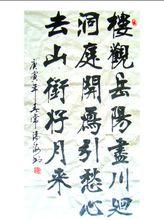 樓觀岳陽盡川迴
洞庭開雁引愁心
去山銜好月来
庚寅年